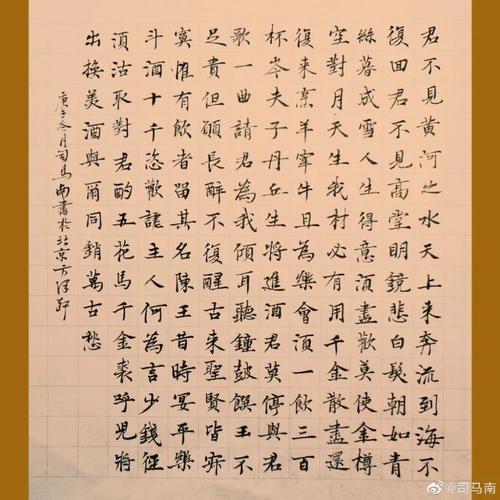 君不見黄河之水天上来奔流到海不
復回君不見高堂明鏡悲白髮朝如青
絲暮成雪人生得意須盡歡莫使金樽
空對月天生我材必有用千金散盡還
復来烹羊宰牛且為樂會須一飲三百
杯岑夫子丹丘生将進酒君莫停與君
歌一曲請君為我傾耳聽鐘鼓饌玉不
足貴但願長醉不復醒古来聖賢皆寂
寞惟有飲者留其名陳王昔時宴平樂
斗酒十千恣歡謔主人何為言少錢徑
須沽取對君酌五花馬千金裘呼児将
出換美酒與爾同銷萬古愁
庚子冬月司馬南書於北京方
@司马南